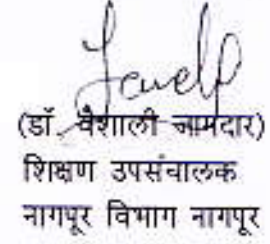 (डॉ. वैशाली जामदार)
शिक्षण उपसंचालक
नागपूर विभाग नागपूर